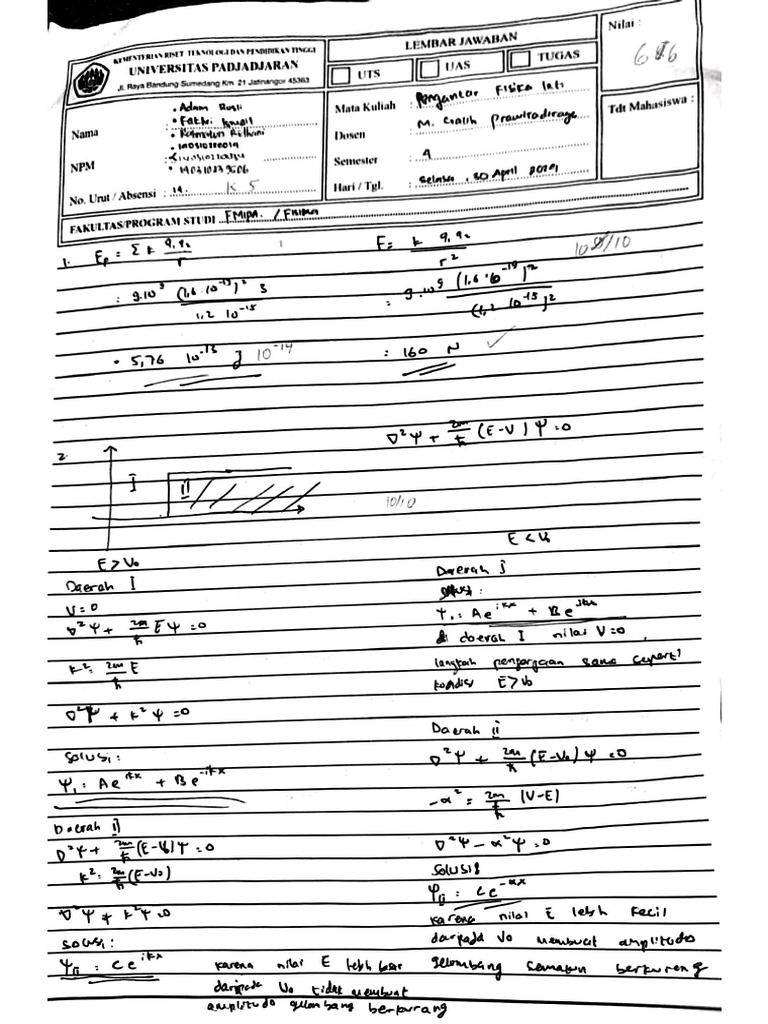 KEMENTERIAN RISET TEKNOLOGI DAN PENDIDIKAN TINGGI
UNIVERSITAS PADJADJARAN
Jl. Raya Bandung-Sumedang Km. 21 Jatinangor 45363
LEMBAR JAWABAN
UTS UAS TUGAS
Nilai :
Nama
• Adam Rusli
• Fakhri
NPM
No. Urut / Absensi : 14. K 5
Mata Kuliah : Pengantar Fisika Inti
Dosen : M. Galih Prawiradiraga
Semester : 4
Hari / Tgl. : Selasa, 30 April
Tdt Mahasiswa :
FAKULTAS/PROGRAM STUDI FMIPA / FISIKA
1. Ep = Σ k q₁ q₂ / r
F = k q₁ q₂ / r²
/10
: 9.10⁹ (1,6 . 10⁻¹⁹)² 3 / 1,2 10⁻¹⁵
: 9.10⁹ (1,6 . 10⁻¹⁹)² / (1,2 10⁻¹⁵)²
• 5,76 10⁻¹³ J 10⁻¹⁴
: 160 N ✓
∇²Ψ + 2m/ħ (E-V) Ψ = 0
2.
I II
10/10
E > V₀
Daerah I
V = 0
∇²Ψ + 2m/ħ E Ψ = 0
k² : 2m/ħ E
∇²Ψ + k²Ψ = 0
Solusi :
Ψ₁ : Ae^ikx + Be^-ikx
Daerah II
∇²Ψ + 2m/ħ (E-V₀)Ψ = 0
k² : 2m/ħ (E-V₀)
∇²Ψ + k²Ψ = 0
solusi :
Ψ_II : Ce^ikx
karena nilai E lebih besar
daripada V₀ tidak membuat
amplitudo gelombang berkurang
E < V₀
Daerah I
Ψ₁ : Ae^ikx + Be
di daerah I nilai V=0
langkah pengerjaan sama seperti
kondisi E > V₀
Daerah II
∇²Ψ + 2m/ħ (E-V₀) Ψ = 0
-α² = 2m/ħ (V-E)
∇²Ψ - α²Ψ = 0
Solusi :
Ψ_II : Ce^-αx
karena nilai E lebih kecil
daripada V₀ membuat amplitudo
gelombang semakin berkurang